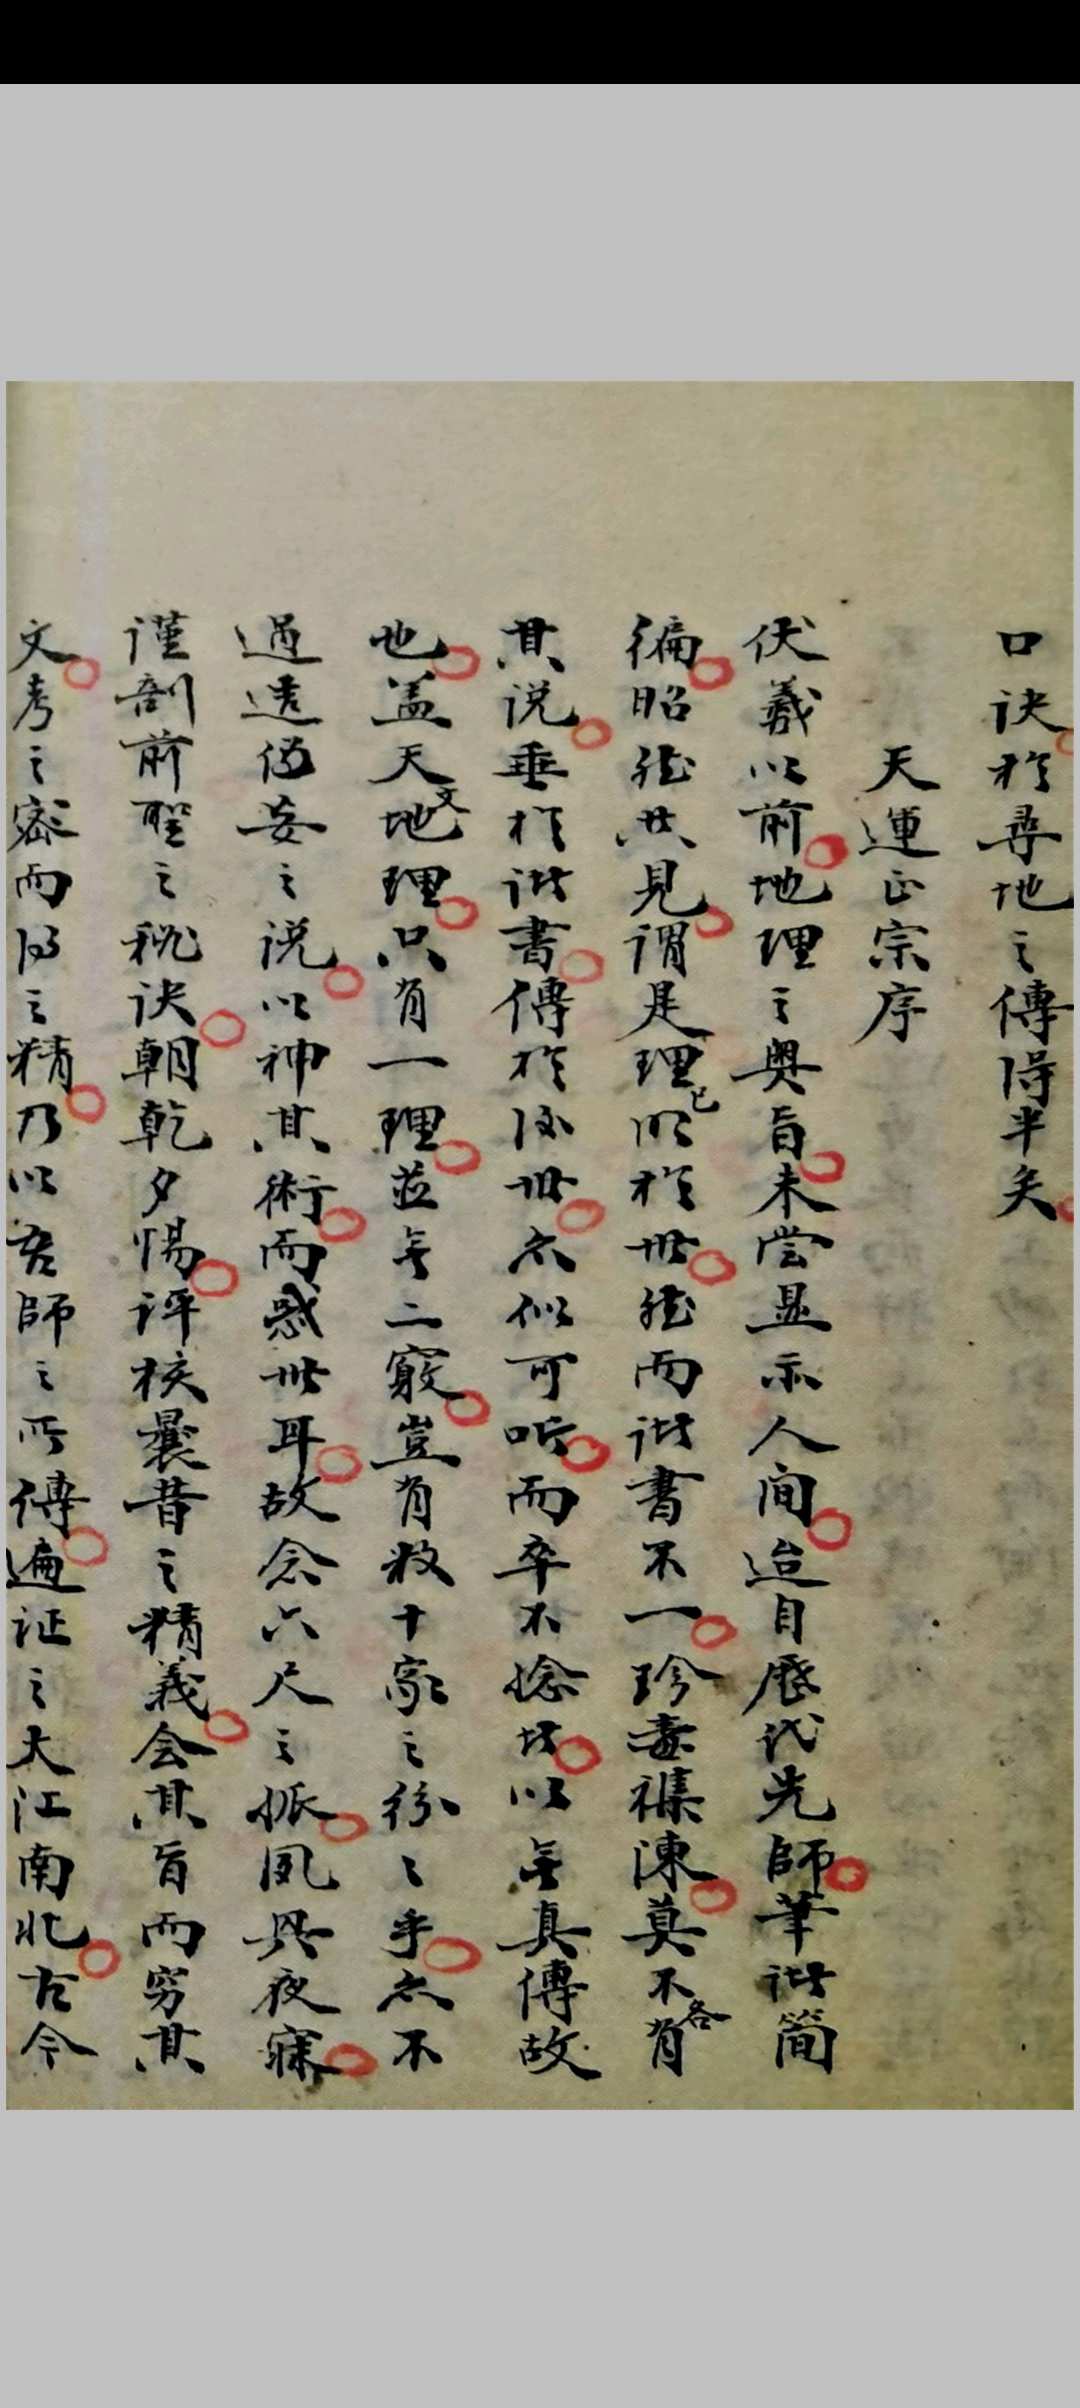 口诀於尋地之傳得半矣
天運正宗序
伏羲以前地理之奥旨未尝显示人间迨自歷代先師筆诸简
徧昭然共見谓是理已明於世然而诸書不一珍毒襍陳莫不各有
其说垂於诸書傳於后世亦似可听而卒不验者以無真傳故
也盖天文地理只有一理並无二竅豈有数十家之纷々乎亦不
過造偽妄之说以神其術而惑世耳故念六尺之孤夙興夜寐
謹剖前聖之秘诀朝乾夕惕评核曩昔之精義会其旨而穷其
文考之密而得之精乃以吾師之所傳遍证之大江南北古今